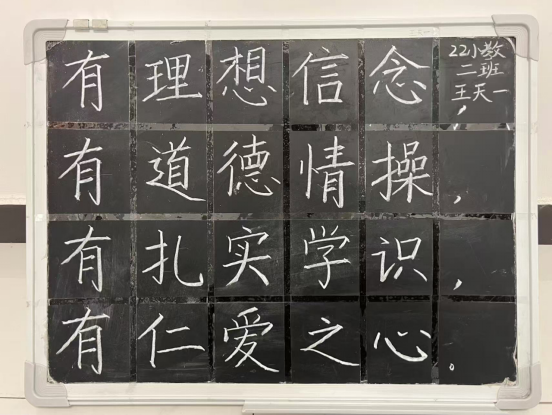 有理想信念，
22小数
二班
王天一
有道德情操，
有扎实学识，
有仁爱之心。